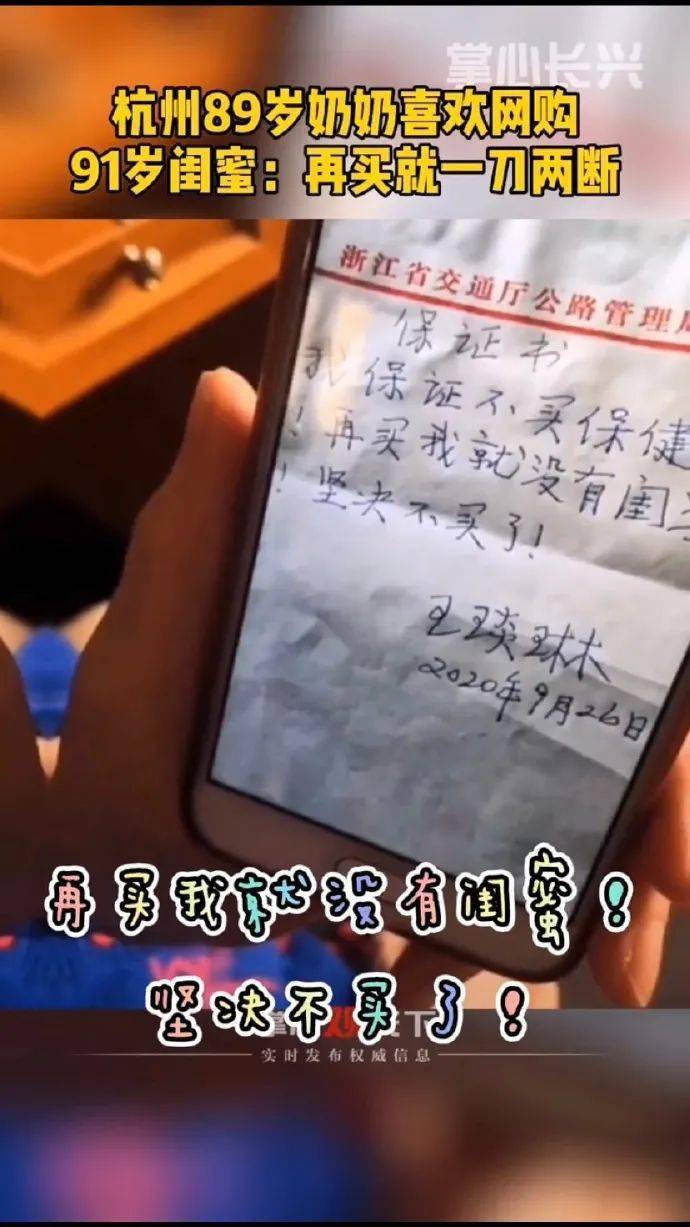 掌心长兴
杭州89岁奶奶喜欢网购
91岁闺蜜：再买就一刀两断
浙江省交通厅公路管理局
保证书
我保证不买保健
！再买我就没有闺
！坚决不买了！
王琰琳
2020年9月26日
再买我就没有闺蜜！
坚决不买了！
实时发布权威信息